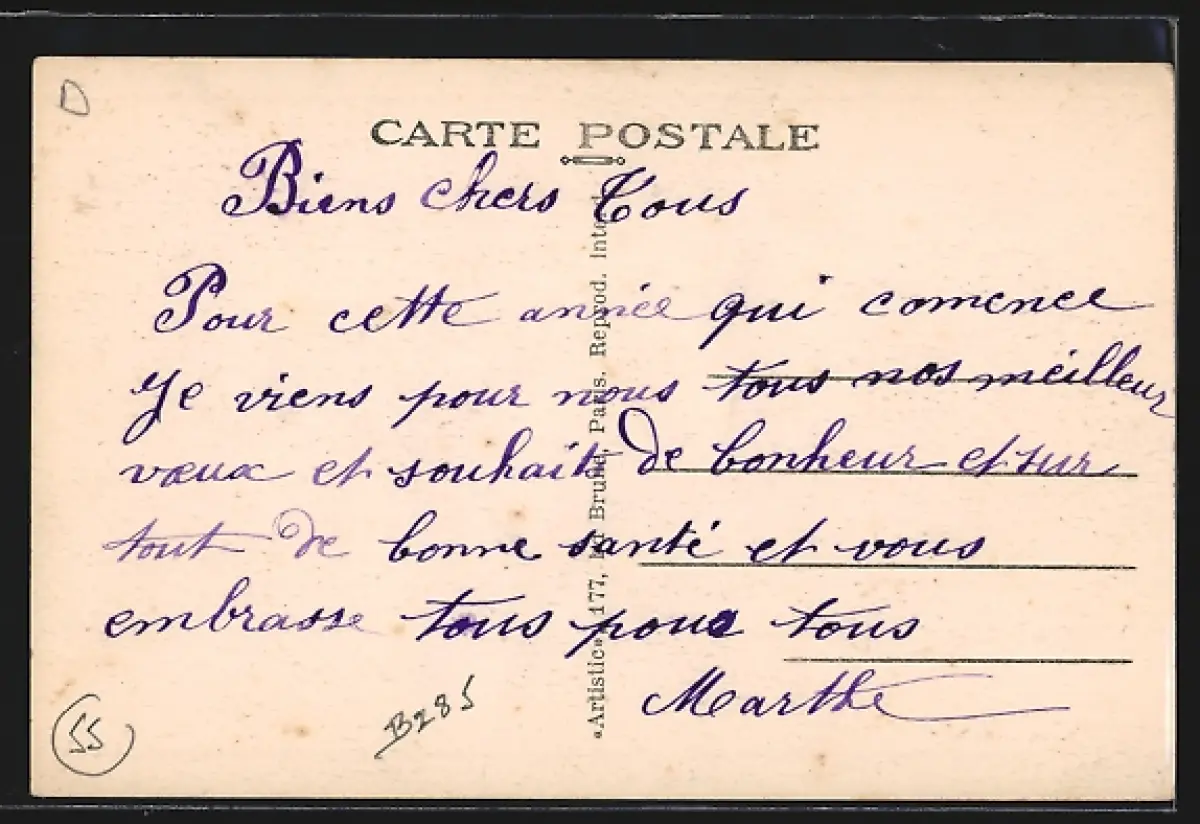 D
CARTE POSTALE
Biens chers Tous
Pour cette année qui comence
Je viens pour nous tous nos meilleur
vœux et souhait de bonheur et sur
tout de bonne santé et vous
embrasse tous pour tous
Marthe
55
B285
«Artistic» 177, Bruno, Paris. Reprod. Inter